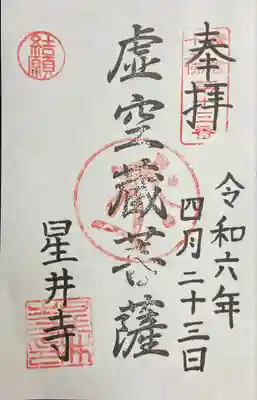 奉拝
令和六年
四月二十三日
虚空蔵菩薩
結願
星井寺